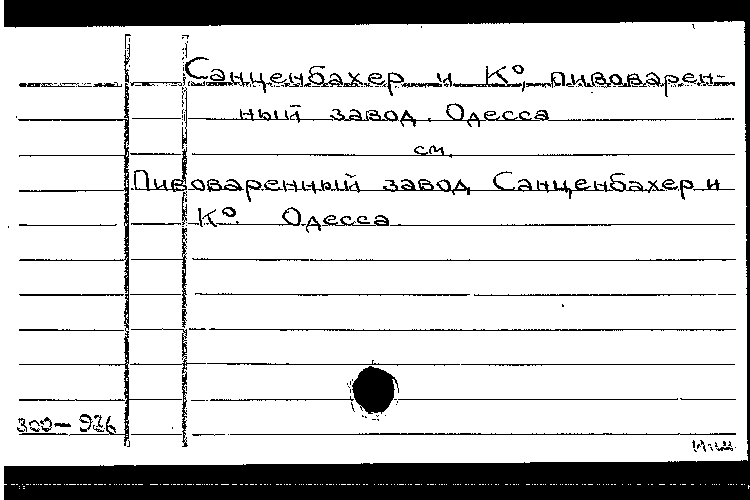 Санценбахер и К°, пивоварен-
ный завод. Одесса
см.
Пивоваренный завод Санценбахер и
К°. Одесса
300-926